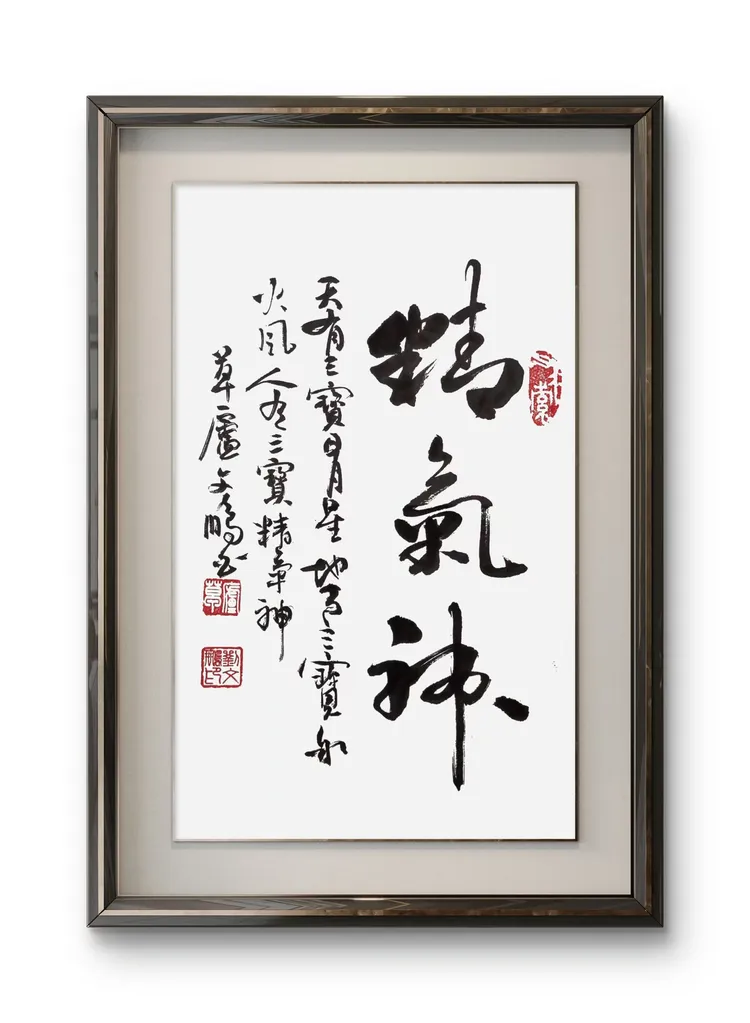 精氣神
天有三寶日月星地有三寶水
火風人有三寶精氣神
草廬文鵬書
草廬
劉文鵬印